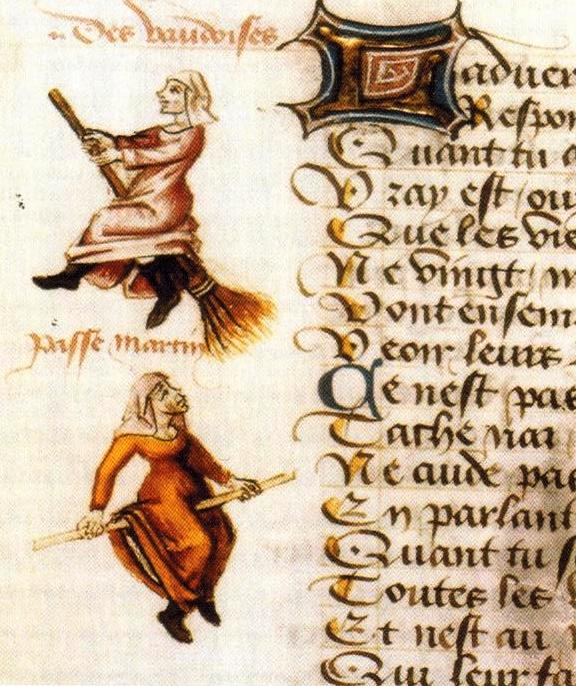 Des vaudoises
passe martin
L aduer
Respon
Quant tu a
Vray est / ou
Que les vie
Ne vingt / m
Vont ensem
Veoir leurs
Ce nest pas
Tache nar
Ne aude pas
En parlant
Quant tu s
Toutes les
Et nest au
Qui leur fa